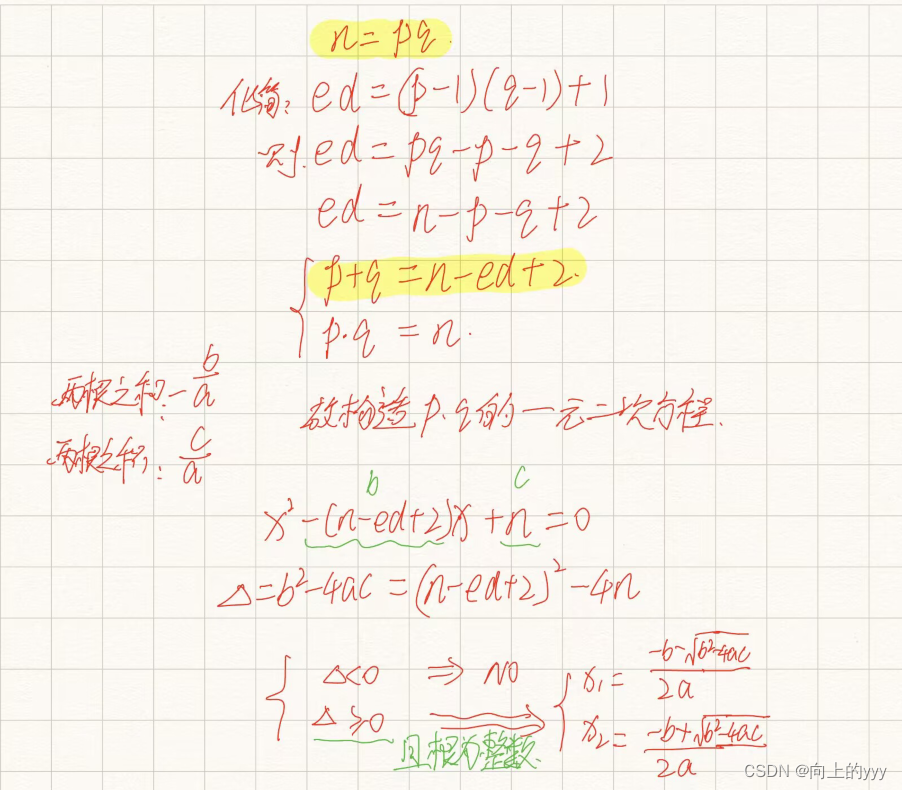 n = pq
化简: ed = (p-1)(q-1)+1
则: ed = pq-p-q+2
ed = n-p-q+2
p+q = n-ed+2.
p·q = n.
两根之和: -b/a
两根之积: c/a
故构造p.q的一元二次方程.
b c
x²-(n-ed+2)x+n=0
△=b²-4ac=(n-ed+2)²-4n
△<0 ⇒ NO
△≥0 ⇒ 且根为整数.
x₁= (-b-√(b²-4ac))/2a
x₂= (-b+√(b²-4ac))/2a
CSDN @向上的yyy